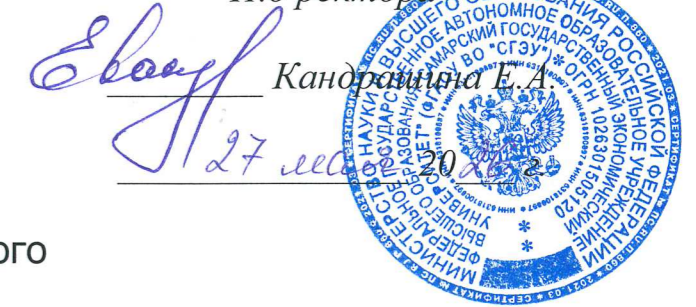 И.о ректора
Кандрашина Е.А.
27 мая 20 г.
ого
МИНИСТЕРСТВО НАУКИ И ВЫСШЕГО ОБРАЗОВАНИЯ РОССИЙСКОЙ ФЕДЕРАЦИИ
ФЕДЕРАЛЬНОЕ ГОСУДАРСТВЕННОЕ АВТОНОМНОЕ ОБРАЗОВАТЕЛЬНОЕ УЧРЕЖДЕНИЕ
ВЫСШЕГО ОБРАЗОВАНИЯ "САМАРСКИЙ ГОСУДАРСТВЕННЫЙ ЭКОНОМИЧЕСКИЙ
УНИВЕРСИТЕТ" ВО "СГЭУ") * ОГРН 1026301505120